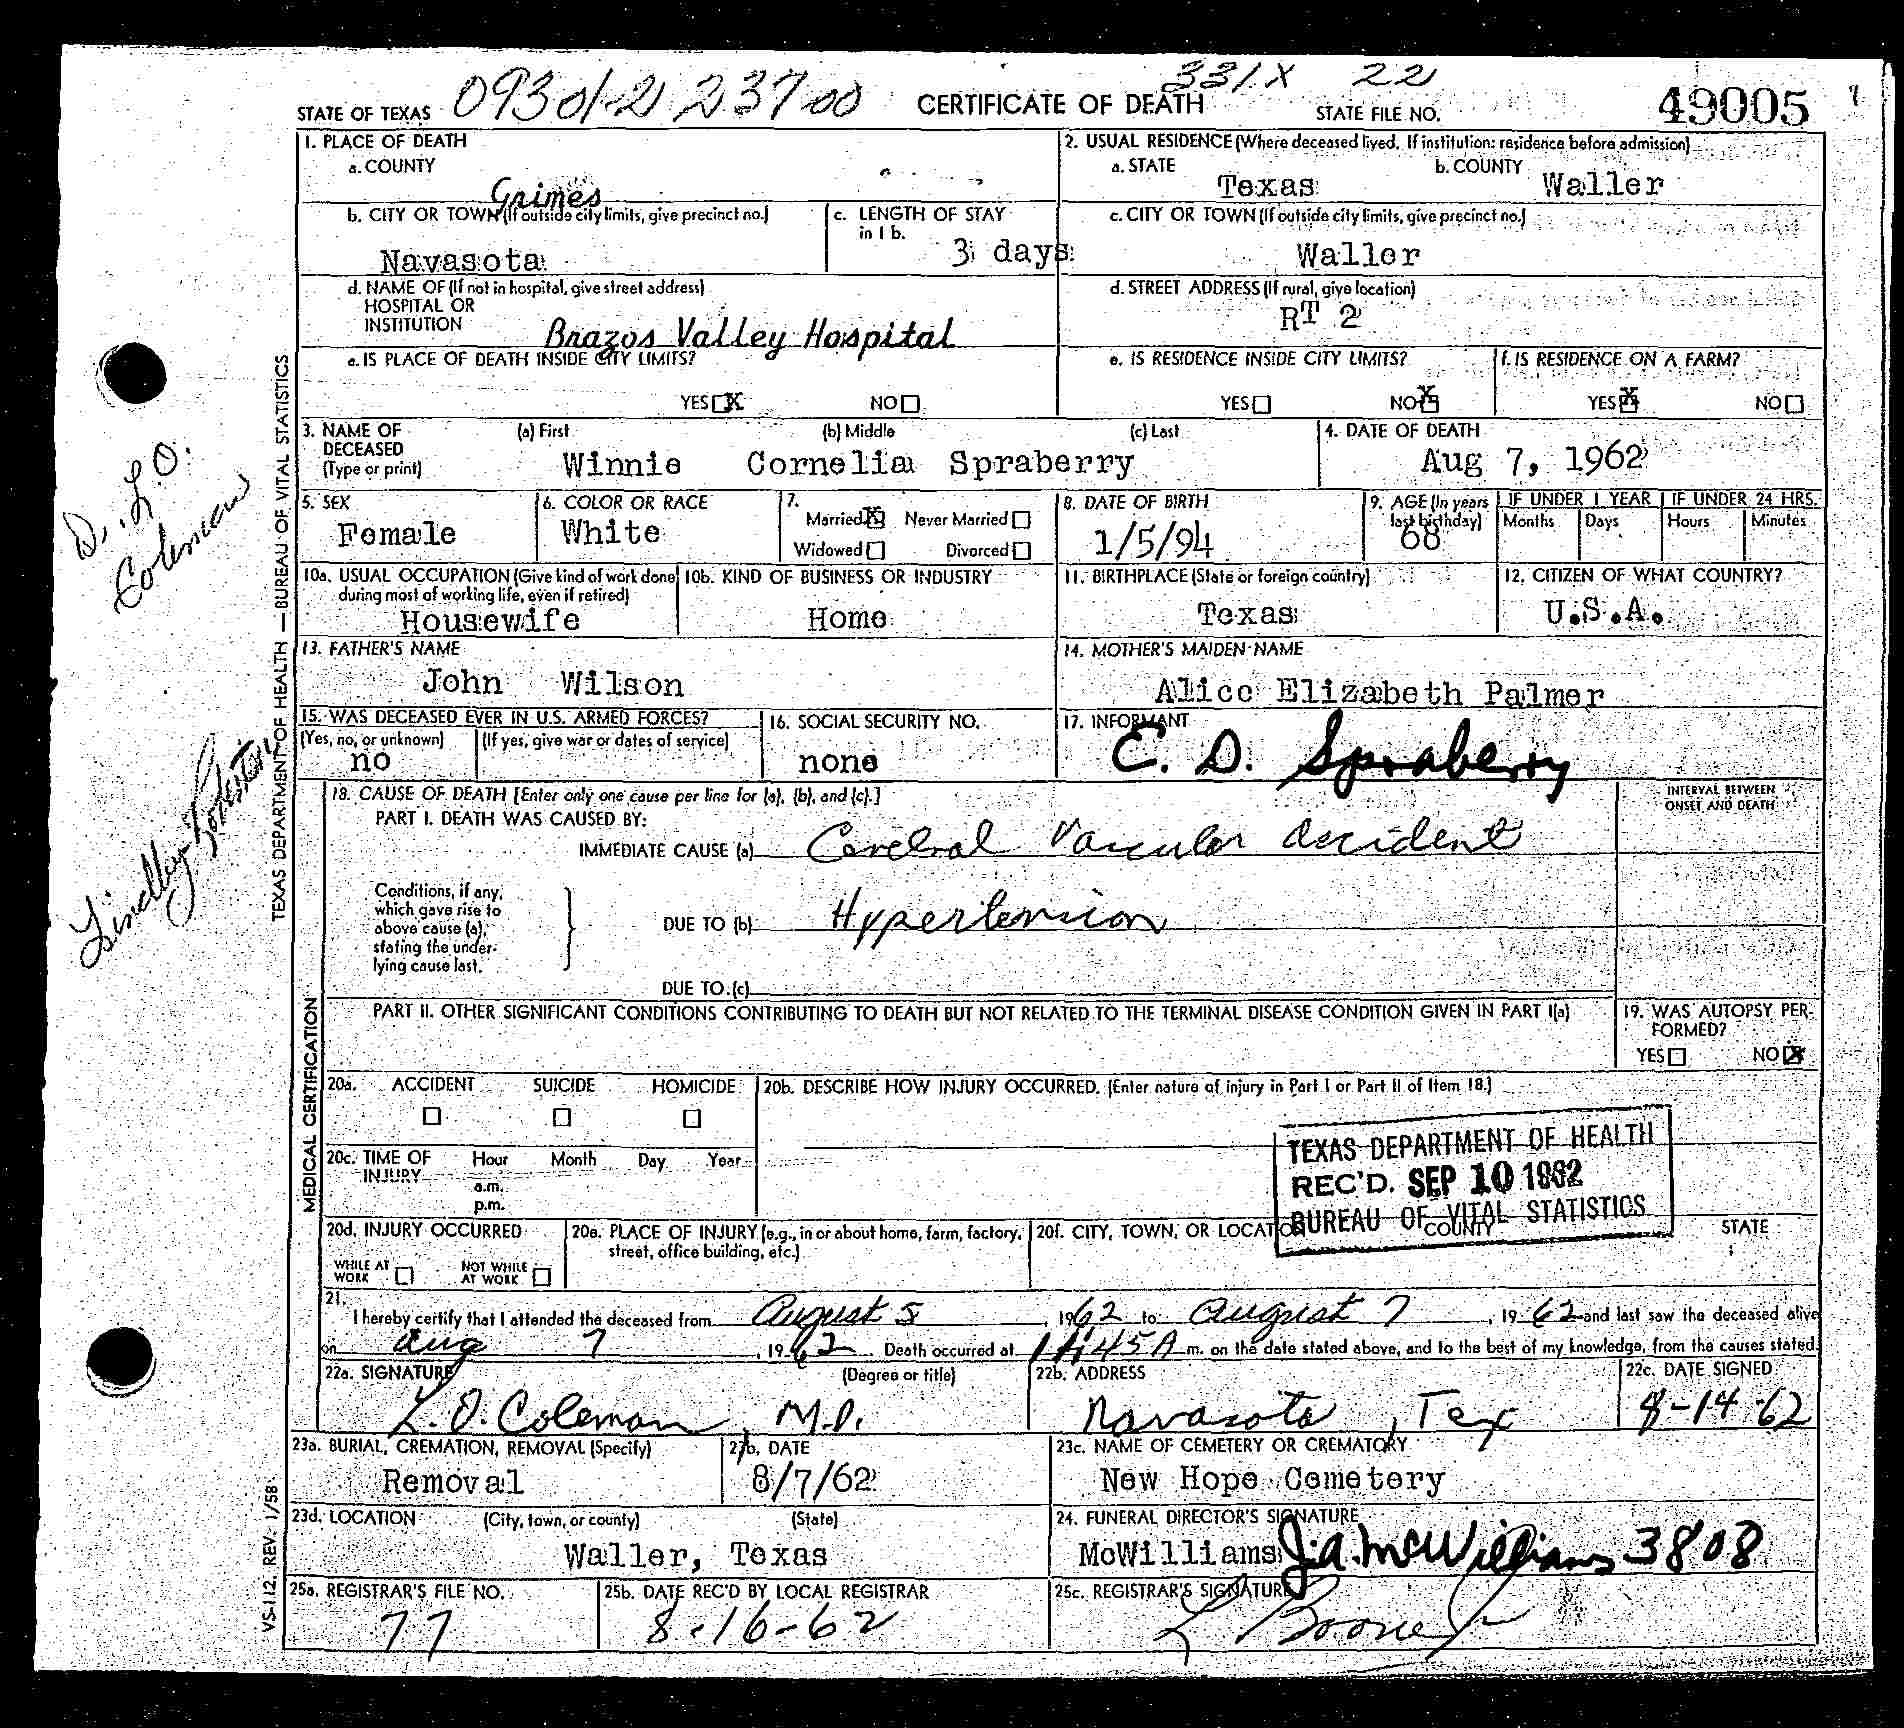 STATE OF TEXAS 09301-2 23700 CERTIFICATE OF DEATH 331X 22 STATE FILE NO. 49005
1. PLACE OF DEATH
a. COUNTY
Grimes
2. USUAL RESIDENCE (Where deceased lived. If institution: residence before admission)
a. STATE b. COUNTY
Texas Waller
b. CITY OR TOWN (If outside city limits, give precinct no.)
Navasota
c. LENGTH OF STAY
in 1 b.
3 days
c. CITY OR TOWN (If outside city limits, give precinct no.)
Waller
d. NAME OF (If not in hospital, give street address)
HOSPITAL OR
INSTITUTION
Brazos Valley Hospital
d. STREET ADDRESS (If rural, give location)
RT 2
e. IS PLACE OF DEATH INSIDE CITY LIMITS?
YES X NO
e. IS RESIDENCE INSIDE CITY LIMITS?
YES NO X
f. IS RESIDENCE ON A FARM?
YES X NO
3. NAME OF
DECEASED
(Type or print)
(a) First (b) Middle (c) Last
Winnie Cornelia Spraberry
4. DATE OF DEATH
Aug 7, 1962
5. SEX
Female
6. COLOR OR RACE
White
7.
Married X Never Married
Widowed Divorced
8. DATE OF BIRTH
1/5/94
9. AGE (In years
last birthday)
68
IF UNDER 1 YEAR IF UNDER 24 HRS.
Months Days Hours Minutes
10a. USUAL OCCUPATION (Give kind of work done
during most of working life, even if retired)
Housewife
10b. KIND OF BUSINESS OR INDUSTRY
Home
11. BIRTHPLACE (State or foreign country)
Texas
12. CITIZEN OF WHAT COUNTRY?
U.S.A.
13. FATHER'S NAME
John Wilson
14. MOTHER'S MAIDEN NAME
Alice Elizabeth Palmer
15. WAS DECEASED EVER IN U.S. ARMED FORCES?
(Yes, no, or unknown) (If yes, give war or dates of service)
no
16. SOCIAL SECURITY NO.
none
17. INFORMANT
E. D. Spraberry
18. CAUSE OF DEATH [Enter only one cause per line for (a), (b), and (c).]
INTERVAL BETWEEN
ONSET AND DEATH
PART I. DEATH WAS CAUSED BY:
IMMEDIATE CAUSE (a) Cerebral Vascular Accident
Conditions, if any,
which gave rise to
above cause (a),
stating the under-
lying cause last.
DUE TO (b) Hypertension
DUE TO (c)
PART II. OTHER SIGNIFICANT CONDITIONS CONTRIBUTING TO DEATH BUT NOT RELATED TO THE TERMINAL DISEASE CONDITION GIVEN IN PART I(a)
19. WAS AUTOPSY PER-
FORMED?
YES NO X
20a. ACCIDENT SUICIDE HOMICIDE
20b. DESCRIBE HOW INJURY OCCURRED. (Enter nature of injury in Part I or Part II of Item 18.)
20c. TIME OF
INJURY
Hour Month Day Year
a.m.
p.m.
TEXAS DEPARTMENT OF HEALTH
REC'D. SEP 10 1962
BUREAU OF VITAL STATISTICS
20d. INJURY OCCURRED
WHILE AT
WORK
NOT WHILE
AT WORK
20e. PLACE OF INJURY (e.g., in or about home, farm, factory,
street, office building, etc.)
20f. CITY, TOWN, OR LOCATION COUNTY STATE
21.
I hereby certify that I attended the deceased from August 5, 1962 to August 7, 1962 and last saw the deceased alive
on Aug 7, 1962. Death occurred at 11:45 A m. on the date stated above, and to the best of my knowledge, from the causes stated.
22a. SIGNATURE (Degree or title)
L. O. Coleman M.D.
22b. ADDRESS
Navasota, Tex
22c. DATE SIGNED
8-14-62
23a. BURIAL, CREMATION, REMOVAL (Specify)
Removal
23b. DATE
8/7/62
23c. NAME OF CEMETERY OR CREMATORY
New Hope Cemetery
23d. LOCATION (City, town, or county) (State)
Waller, Texas
24. FUNERAL DIRECTOR'S SIGNATURE
McWilliams J.A. McWilliams 3808
25a. REGISTRAR'S FILE NO.
77
25b. DATE REC'D BY LOCAL REGISTRAR
8-16-62
25c. REGISTRAR'S SIGNATURE
L Boone Jr
TEXAS DEPARTMENT OF HEALTH — BUREAU OF VITAL STATISTICS
MEDICAL CERTIFICATION
VS-112, REV. 1/58
D. L.O.
Coleman